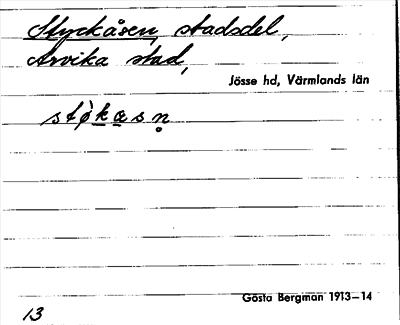 Styckåsen, stadsdel,
Arvika stad,
Jösse hd, Värmlands län
stø̀kasn̥
Gösta Bergman 1913–14
13